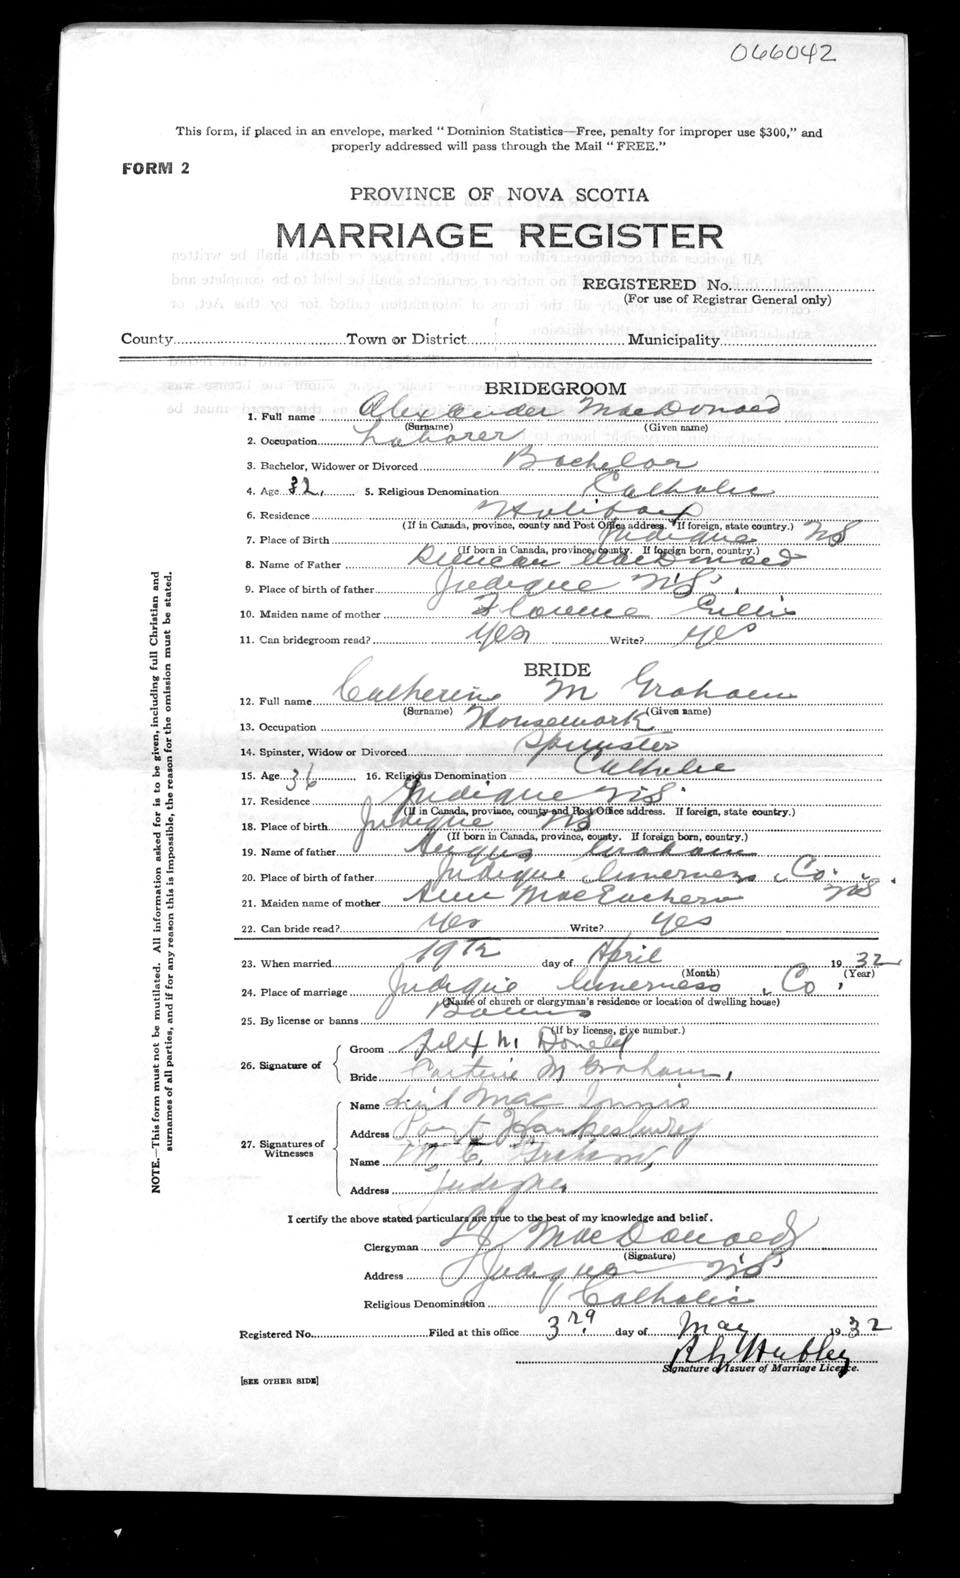 066042
This form, if placed in an envelope, marked "Dominion Statistics—Free, penalty for improper use $300," and
properly addressed will pass through the Mail "FREE."
FORM 2
PROVINCE OF NOVA SCOTIA
MARRIAGE REGISTER
REGISTERED No.
(For use of Registrar General only)
County Town or District Municipality
BRIDEGROOM
1. Full name Alexander MacDonald
(Surname) (Given name)
2. Occupation Laborer
3. Bachelor, Widower or Divorced Bachelor
4. Age 32, 5. Religious Denomination Catholic
6. Residence Halifax
(If in Canada, province, county and Post Office address. If foreign, state country.)
7. Place of Birth Judique NS
(If born in Canada, province, county. If foreign born, country.)
8. Name of Father Duncan MacDonald
9. Place of birth of father Judique N.S.
10. Maiden name of mother Florence Gillis
11. Can bridegroom read? Yes Write? Yes
BRIDE
12. Full name Catherine M Graham
(Surname) (Given name)
13. Occupation Housework
14. Spinster, Widow or Divorced Spinster
15. Age 36 16. Religious Denomination Catholic
17. Residence Judique N.S.
(If in Canada, province, county and Post Office address. If foreign, state country.)
18. Place of birth Judique NS
(If born in Canada, province, county. If foreign born, country.)
19. Name of father Angus Graham
20. Place of birth of father Judique Inverness Co. NS
21. Maiden name of mother Ann MacEachern
22. Can bride read? Yes Write? Yes
23. When married 19th day of April 1932
(Month) (Year)
24. Place of marriage Judique Inverness Co.
(Name of church or clergyman's residence or location of dwelling house)
25. By license or banns Banns
(If by license, give number.)
26. Signature of
Groom Alex Mc Donald
Bride M Graham,
27. Signatures of
Witnesses
Name Mac Innis
Address Port Hawkesbury
Name M. C. Graham,
Address Judique
I certify the above stated particulars are true to the best of my knowledge and belief.
Clergyman MacDonald
(Signature)
Address Judique N.S.
Religious Denomination Catholic
Registered No. Filed at this office 3rd day of May 1932
Signature of Issuer of Marriage Licence.
[SEE OTHER SIDE]
NOTE.—This form must not be mutilated. All information asked for is to be given, including full Christian and
surnames of all parties, and if for any reason this is impossible, the reason for the omission must be stated.